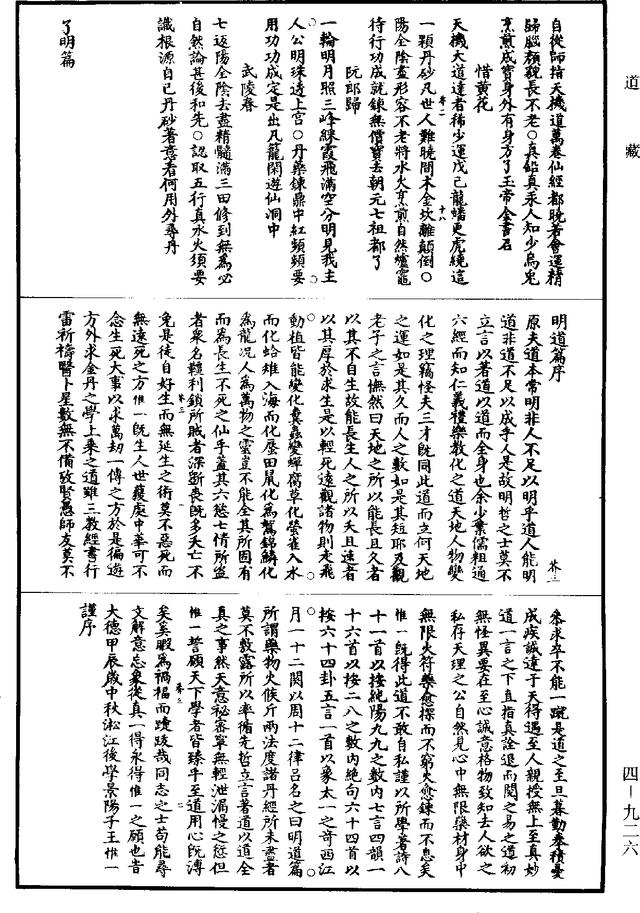 道藏
自從師指天機道萬卷仙經都曉若會運精
歸腦顏貌長不老○真鉛真汞人知少烏兎
烹煎成寶身外有身方了玉帝金書召
惜黃花
天機大道達者稀少運戊己龍蟠更虎繞這
一顆丹砂凡世人難曉間木金坎離顛倒○
陽全陰盡形容不老將水火烹煎自然爐竈
待行功成就鍊無價寶去朝元七祖都了
阮郎歸
一輪明月照三峰綵霞飛滿空分明見我主
人公明珠透上宮○丹藥鍊鼎中紅頻頻要
用功功成定是出凡籠閑遊仙洞中
武陵春
七返陽全陰去盡精髓滿三田修到無為必
自然論甚後和先○認取五行真水火須要
識根源自己丹砂著意看何用外尋丹
了明篇
明道篇序
原夫道本常明非人不足以明乎道人能明
道非道不足以成乎人是故明哲之士莫不
立言以著道以道而全身也余少業儒粗通
六經而知仁義禮樂教化之道天地人物變
化之理竊怪夫三才既同此道而立何天地
之運如是其久而人之數如是其短耶及觀
老子之言憮然曰天地之所以能長且久者
以其不自生故能長生人之所以夭且速者
以其厚於求生是以輕死遠觀諸物則走飛
動植皆能變化糞蟲變蟬腐草化螢雀入水
而化蛤雉入海而化蜃田鼠化為鴽錦鱗化
為龍況人為萬物之靈豈不能全其所固有
而為長生不死之仙乎蓋其六慾七情所盜
者衆名韁利鎖所賊者深斵喪既多夭亡不
免是徒自好生而無延生之術莫不惡死而
無遠死之方惟一既生人世獲處中華可不
念生死大事以求萬劫一傳之方於是徧遊
方外求金丹之學上乘之道雖三教經書行
雷祈禱醫卜星數無不備攷賢愚師友莫不
參求卒不能一蹴是道之至旦暮勤拳積憂
成疾誠達于天得遇至人親授無上至真妙
道一言之下直指真詮退而閱之易之道初
無怪異要在至心誠意格物致知去人欲之
私存天理之公自然見心中無限藥材身中
無限火符藥愈採而不窮火愈鍊而不息矣
惟一既得此道不敢自私謹以所學著詩八
十一首以按純陽九九之數內七言四韻一
十六首以按二八之數內絶句六十四首以
按六十四卦五言一首以象太一之奇西江
月一十二闋以周十二律呂名之曰明道篇
所謂藥物火候斤兩法度諸丹經所未盡者
莫不敷露所以率循先哲立言著道以道全
真之事然天意祕密罩無輕泄漏慢之愆但
惟一誓願天下學者皆臻乎至道用心既溥
矣奚暇為禍福而疐跋哉同志之士苟能尋
文解意忘象從真一得永得惟一之願也旹
大德甲辰歲中秋淞江後學景陽子王惟一
謹序
四－九二六